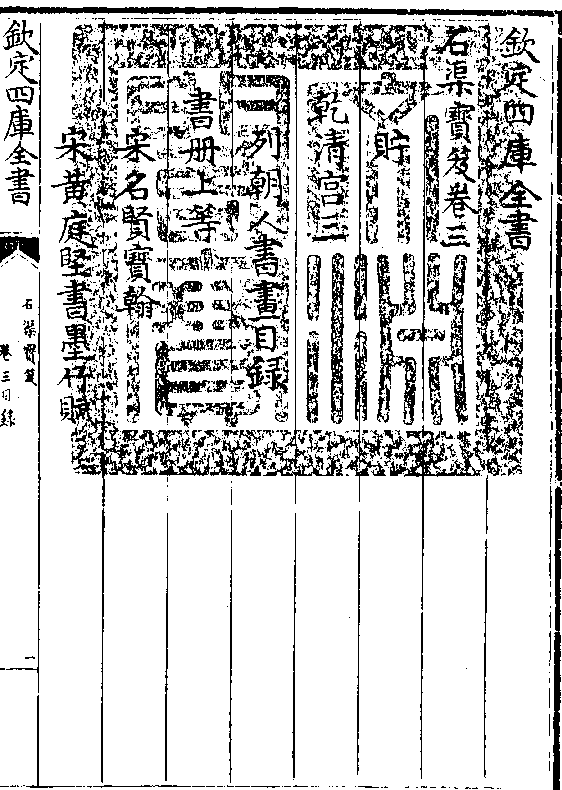 欽定四庫全書
石渠寶笈卷三
貯
乾清宫三
列朝人書畫目録
書册上等
宋名賢寶翰
宋黄庭堅書墨竹賦
欽定四庫全書
石渠寶笈
卷三目録
一